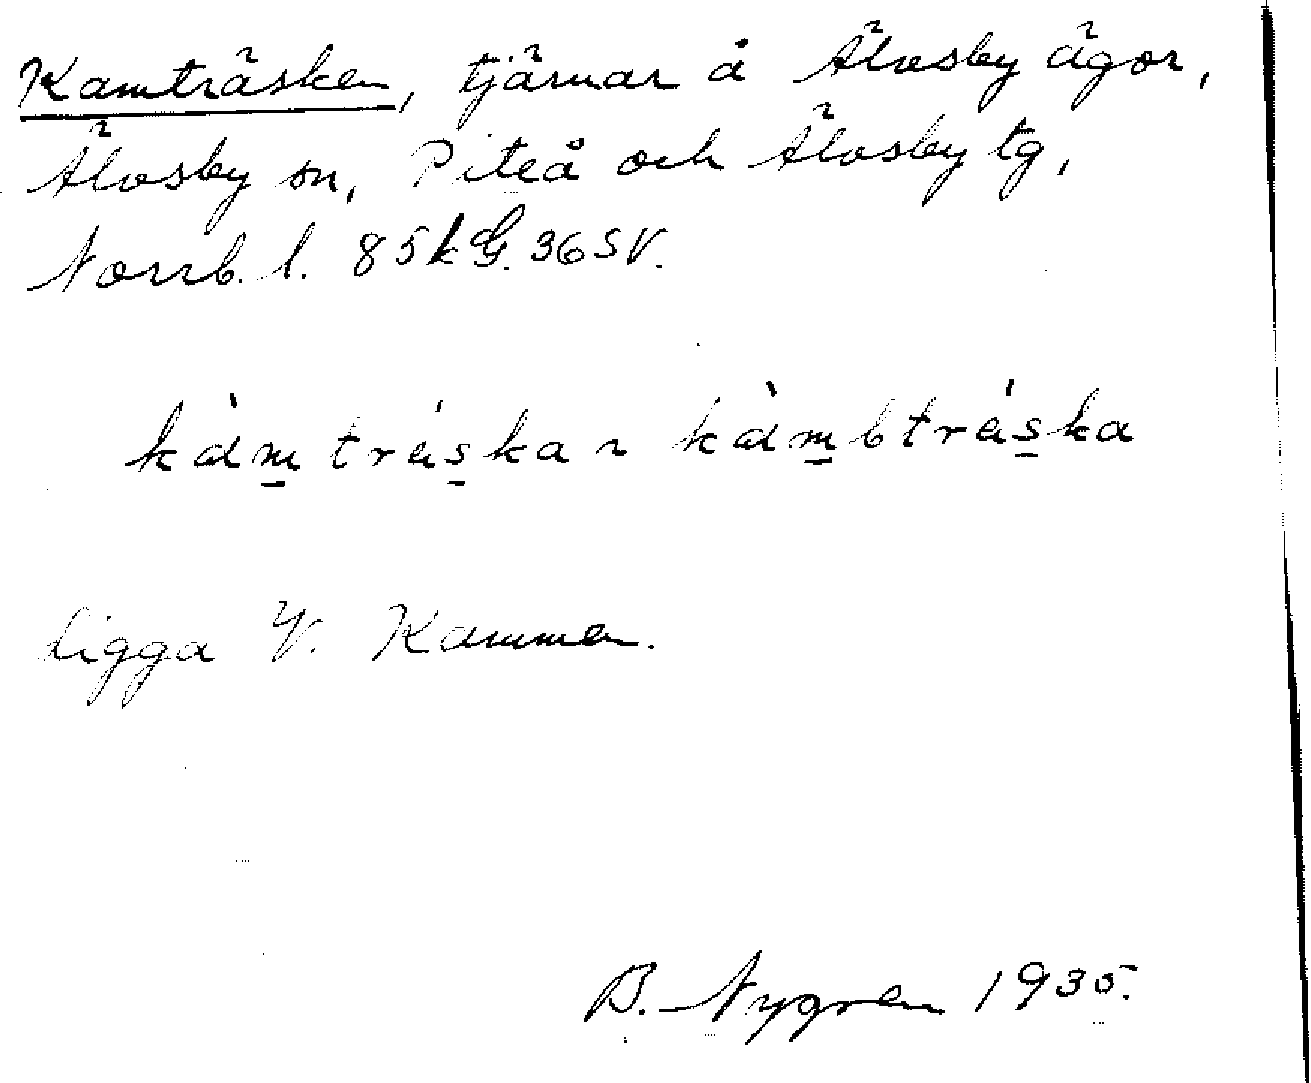 Kamträsken, tjärnar å Älvsby ägor,
Älvsby sn, Piteå och Älvsby tg,
Norrb. l. 85kG. 36SV.
kàmtráska ~ kàmbtráska
Ligga V. Kammen.
B. Nygren 1935.